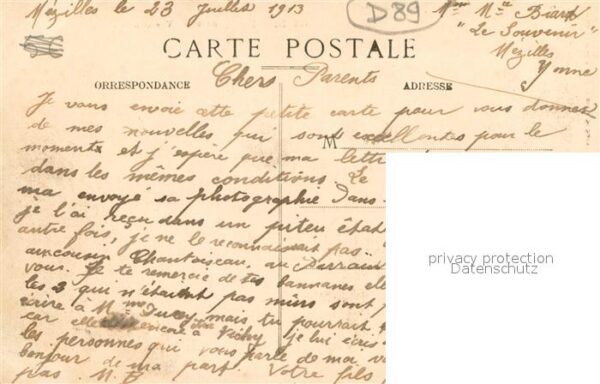 Mézilles le 23 Juillet 1913
D89
Mme Mce Biard
"Le Souvenir"
Mézilles
Yonne
CARTE POSTALE
ORRESPONDANCE
ADRESSE
Chers Parents
Je vous envoie cette petite carte pour vous donner
de mes nouvelles qui sont excellentes pour le
M
moment et j'espère que ma lettr
dans les mêmes conditions. Le
ma envoyé sa photographie Dans
je l'ai reçu dans un piteu état
autre fois, je ne le reconnaissait pas.
au cousin Chantoiseau, au Parrain
vous. Je te remercie de tes bannanes elle
les 3 qui n'étaient pas mures sont
écrire à Mme mais tu pourrait
car elle encore à Vichy je lui écris
les personnes qui vous parle de moi v
bonjour de ma part. Votre fils
pas. M. B
privacy protection
Datenschutz